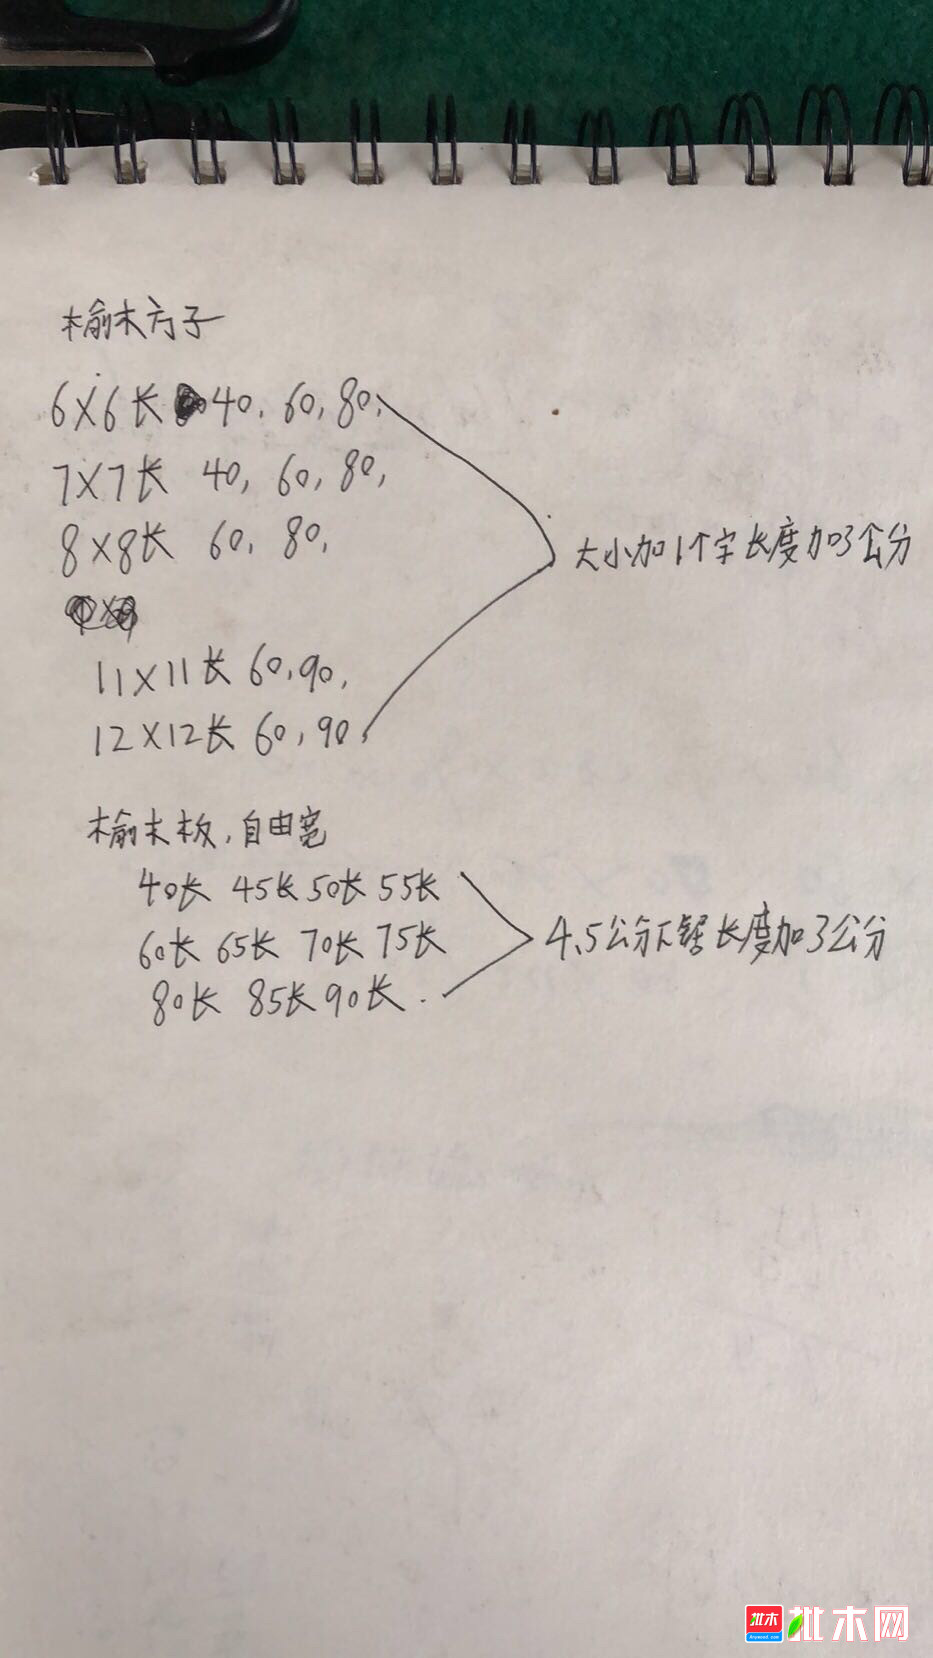 榆木方子
6X6长 40, 60, 80,
7X7长 40, 60, 80,
8X8长 60, 80,
11X11长 60, 90,
12X12长 60, 90,
大小加1个字长度加3公分
榆木板,自由宽
40长 45长 50长 55长
60长 65长 70长 75长
80长 85长 90长.
4.5公分下锯长度加3公分
批木
Anywood.com
批木网